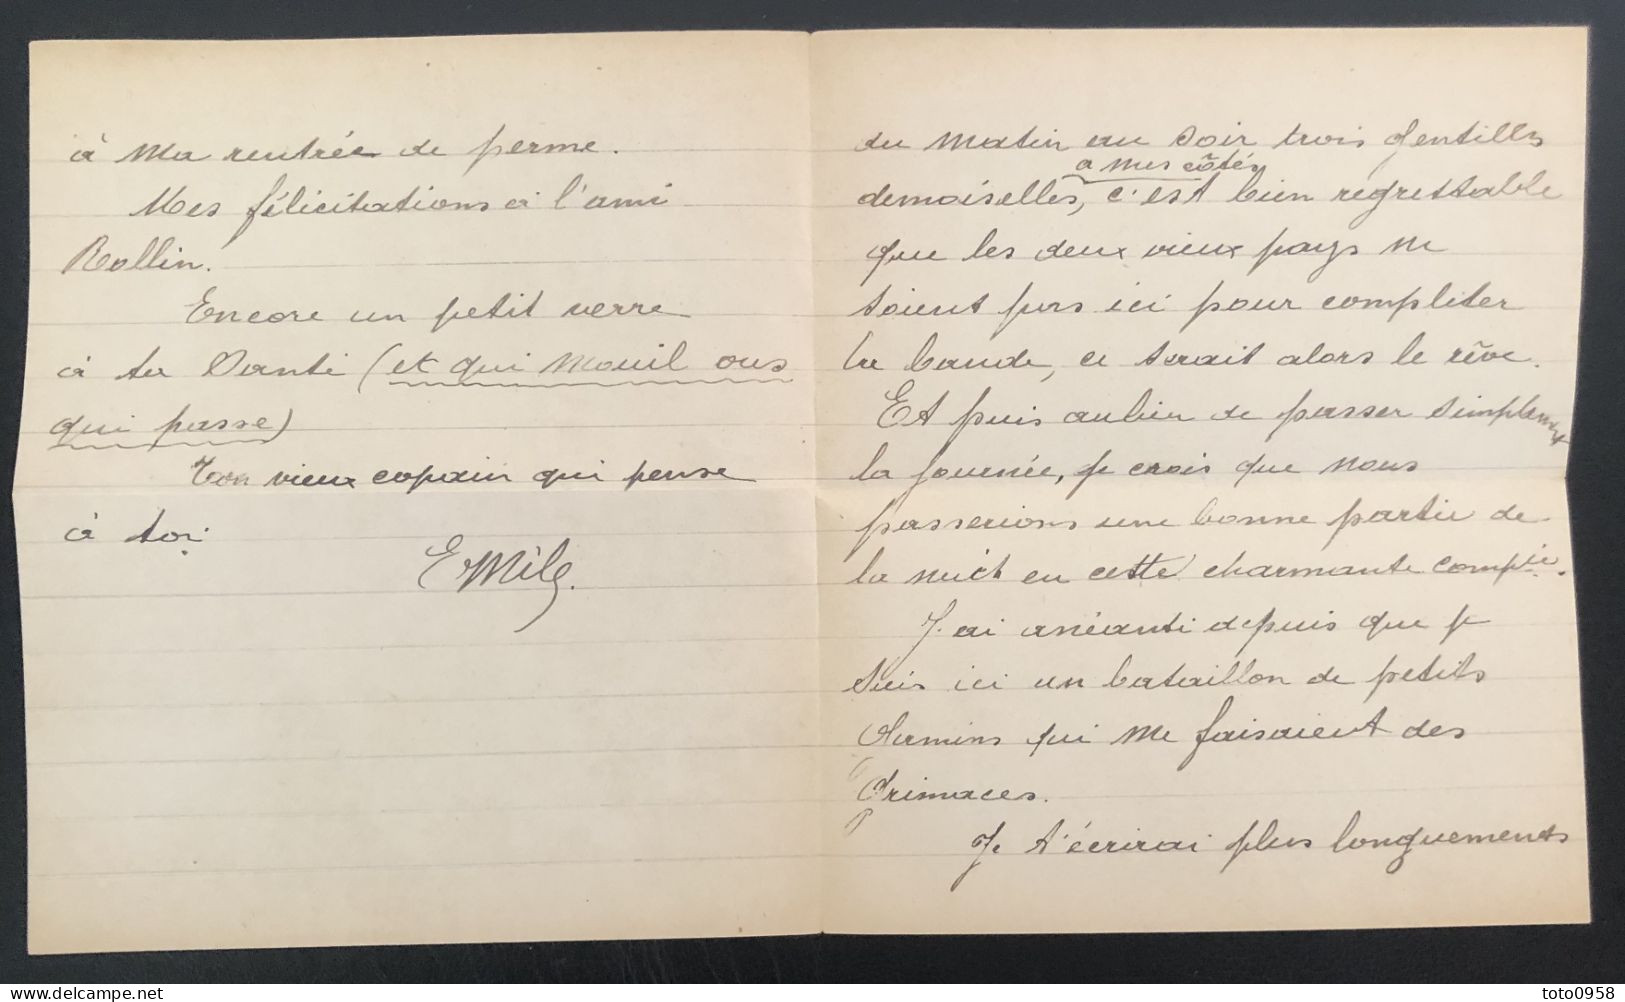 à ma rentrée de perme.
Mes félicitations à l'ami
Rollin.
Encore un petit verre
à ta santé (et qui mouil ous
qui passe)
Ton vieux copain qui pense
à toi.
Emile.
du matin au soir trois gentilles
a mes côtés
demoiselles, c'est bien regrettable
que les deux vieux pays ne
soient pas ici pour compléter
la bande, ce serait alors le rêve.
Et puis au lieu de passer simplement
la journée, je crois que nous
passerions une bonne partie de
la nuit en cette charmante compie.
J'ai anéanti depuis que je
suis ici un bataillon de petits
qui me faisaient des
Grimaces.
Je t'écrirai plus longuements
toto0958